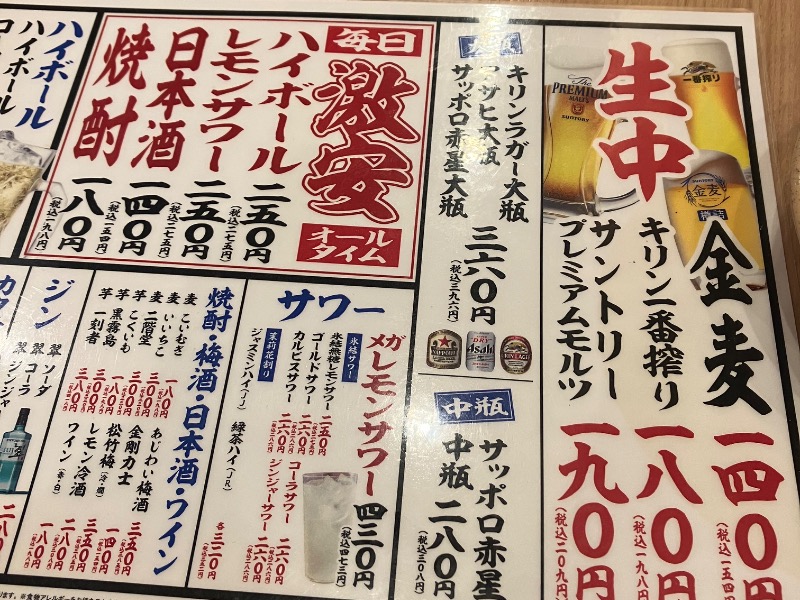 生中
金麦
一四〇円
(税込一五四円)
キリン一番搾り
一八〇円
(税込一九八円)
サントリー
プレミアムモルツ
一九〇円
(税込二〇九円)
The
PREMIUM
MALT'S
SUNTORY
一番搾り
金麦
キリンラガー大瓶
アサヒ大瓶
サッポロ赤星大瓶
三六〇円
(税込三九六円)
Asahi
中瓶
サッポロ赤星
中瓶
二八〇円
(税込三〇八円)
毎日
激安
オール
タイム
ハイボール
二五〇円
(税込二七五円)
レモンサワー
二五〇円
(税込二七五円)
日本酒
一四〇円
(税込一五四円)
焼酎
一八〇円
(税込一九八円)
ハイボール
ハイボール
サワー
メガレモンサワー
四三〇円
(税込四七三円)
氷結サワー
氷結無糖レモンサワー
ゴールドサワー
二六〇円
カルピスサワー
二六〇円
コーラサワー
二六〇円
ジンジャーサワー
二六〇円
茉莉花割り
ジャスミンハイ(JJ)
緑茶ハイ(JR)
各三二〇円
焼酎・梅酒・日本酒・ワイン
麦 こいむぎ
一八〇円
麦 いいちこ
三〇〇円
麦 二階堂
三〇〇円
芋 こくいも
一八〇円
芋 黒霧島
三〇〇円
芋 一刻者
三八〇円
あじわい梅酒
三五〇円
金剛力士
松竹梅
一四〇円
レモン冷酒
三五〇円
ワイン(赤・白)
ジン
翠 ソーダ
翠 コーラ
翠 ジンジャー